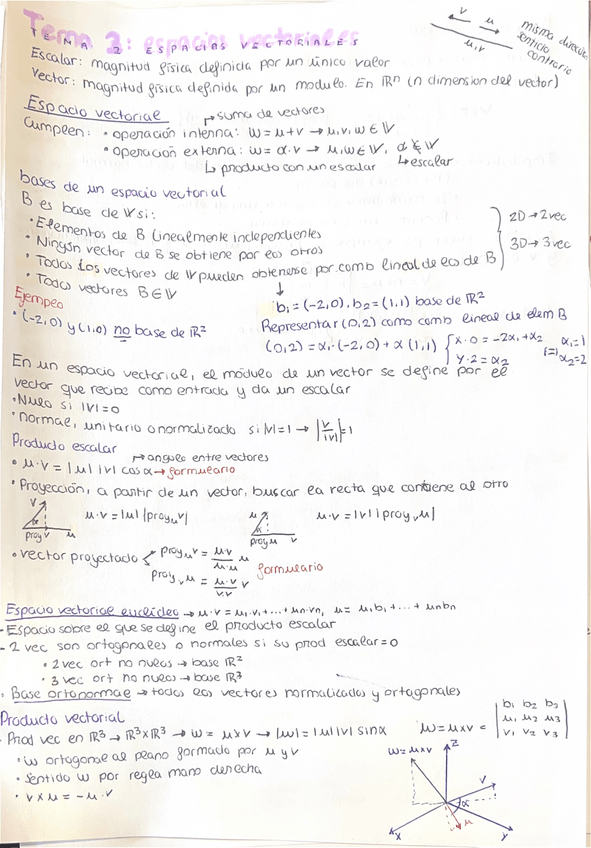 Tema 2: espacios vectoriales
TEMA 2 ESPACIOS VECTORIALES
v u
u.v
misma direccion
sentido
contrario
Escalar: magnitud física definida por un único valor
Vector: magnitud física definida por un modulo. En ℝⁿ (n dimension del vector)
Espacio vectorial
↱ suma de vectores
Cumplen: • operación interna: w = u + v → u, v, w ∈ V
• operación externa: w = α · v → u, w ∈ V, α ∉ V
↳ producto con un escalar ↳ escalar
bases de un espacio vectorial
B es base de V si:
• Elementos de B linealmente independientes
• Ningún vector de B se obtiene por los otros
• Todos los vectores de V pueden obtenerse por comb lineal de los de B
• Todos vectores B ∈ V
2D → 2 vec
3D → 3 vec
Ejemplo
• (-2,0) y (1,0) no base de ℝ²
↓
b₁ = (-2,0), b₂ = (1,1) base de ℝ²
Representar (0,2) como comb lineal de elem B
(0,2) = α₁ · (-2,0) + α (1,1) { x · 0 = -2α₁ + α₂ α₁ = 1
Y · 2 = α₂ α₂ = 2
En un espacio vectorial, el módulo de un vector se define por el
vector que recibe como entrada y da un escalar
• Nulo si |v| = 0
• normal, unitario o normalizado si |v| = 1 → |v/|v|| = 1
Producto escalar
↱ angulo entre vectores
• u · v = |u| |v| cos α → formulario
• Proyección, a partir de un vector, buscar la recta que contiene al otro
v α proy v u
u · v = |u| |proy_u v|
u proy u v
u · v = |v| |proy_v u|
• vector proyectado proy_u v = u·v/u·u u
proy_v u = u·v/v·v v
formulario
Espacio vectorial euclídeo → u · v = u₁ · v₁ + ... + un · vn, u = u₁b₁ + ... + unbn
- Espacio sobre el que se define el producto escalar
- 2 vec son ortogonales o normales si su prod escalar = 0
• 2 vec ort no nulos → base ℝ²
• 3 vec ort no nulos → base ℝ³
• Base ortonormal → todos los vectores normalizados y ortogonales
Producto vectorial
- Prod vec en ℝ³ → ℝ³xℝ³ → w = u x v → |w| = |u| |v| sin α
w = u x v = | b₁ b₂ b₃ |
| u₁ u₂ u₃ |
| v₁ v₂ v₃ |
• w ortogonal al plano formado por u y v
• Sentido w por regla mano derecha
• v x u = - u · v
w = u x v Z v α u x Y